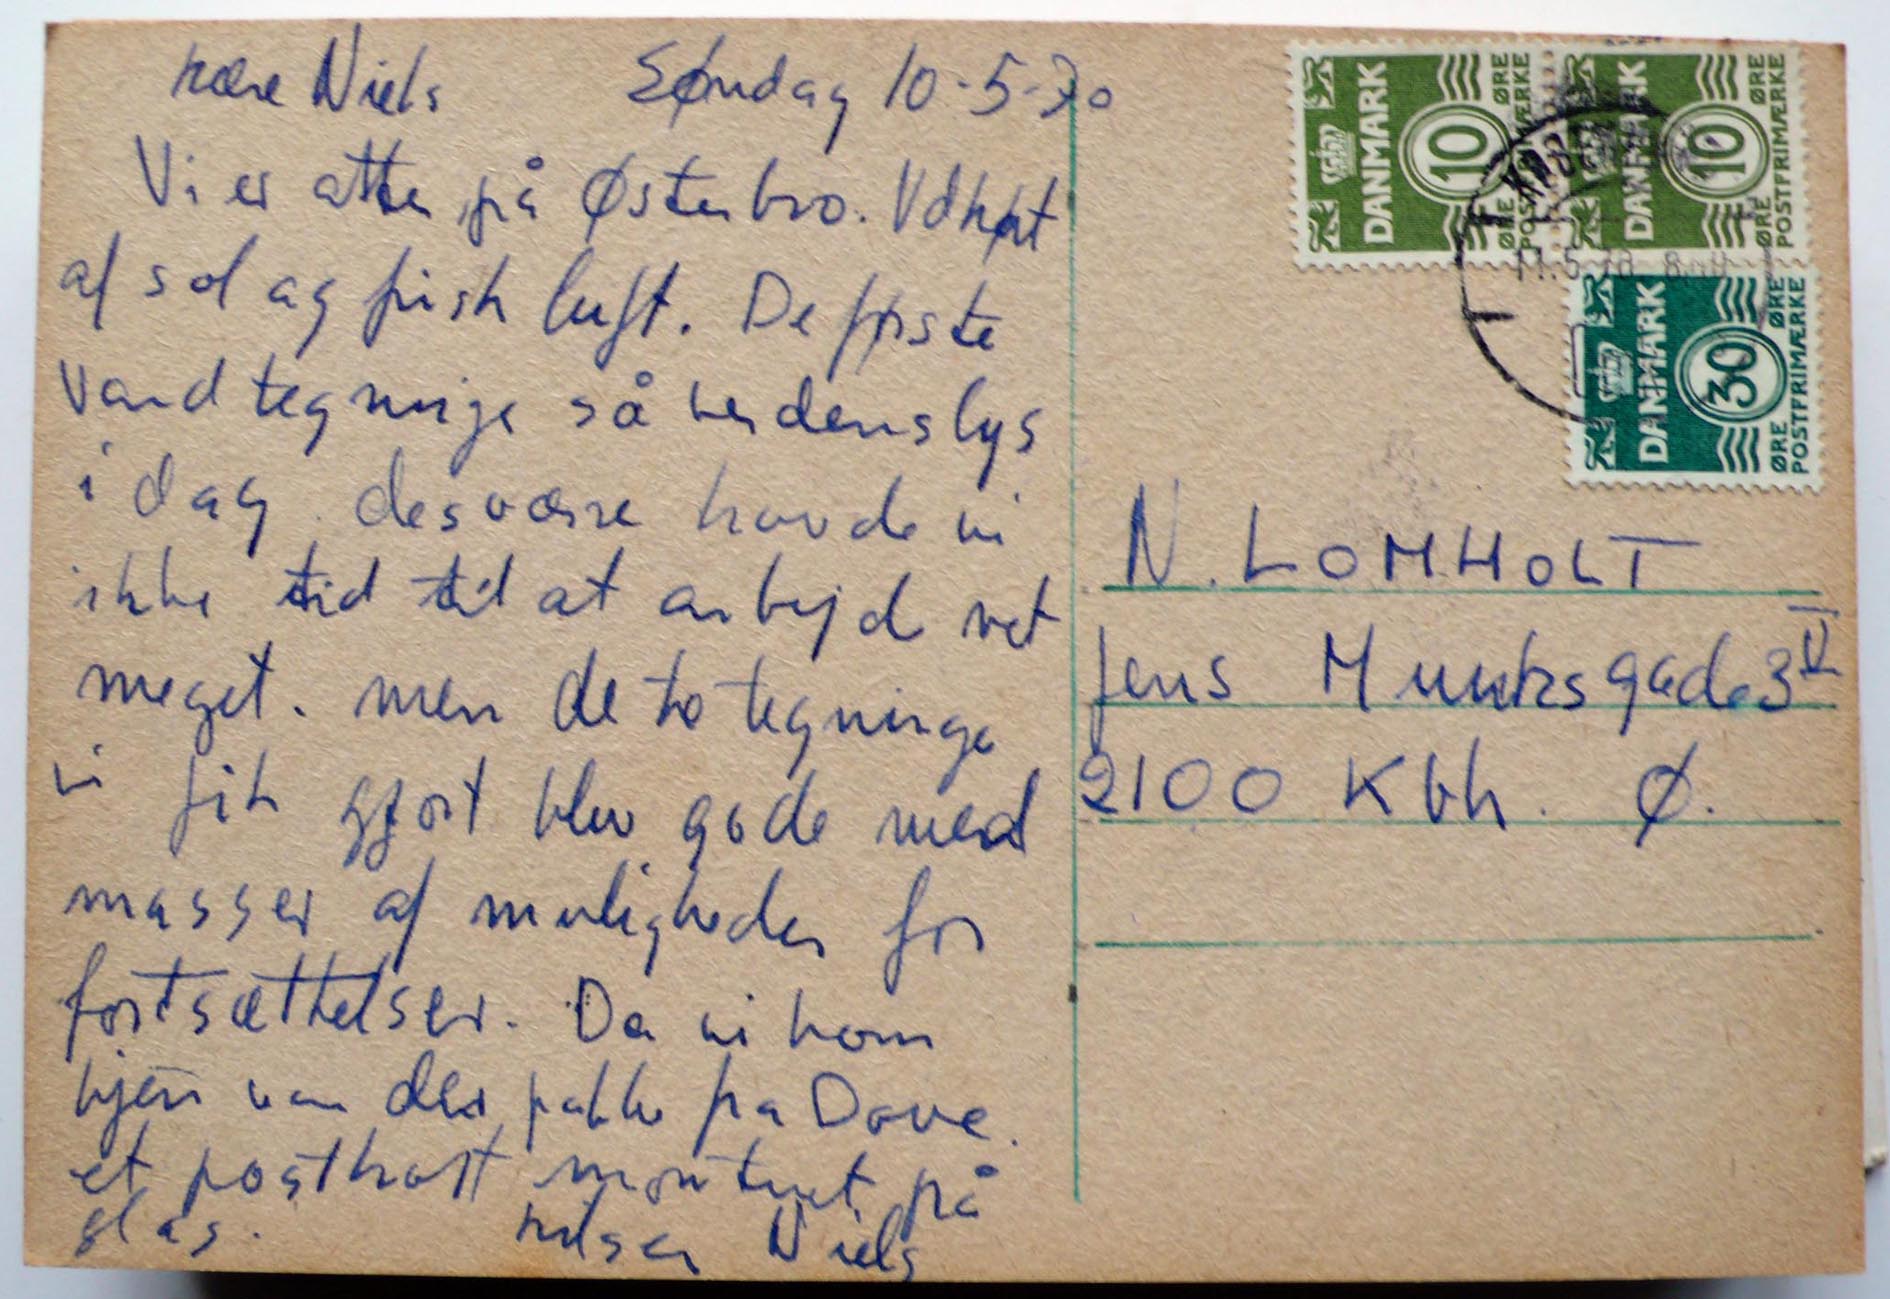 kære Niels Søndag 10-5-70
Vi er atter på Østerbro. Udkørt
af sol og frisk luft. De første
vandtegninge så verdens lys
i dag. desværre havde vi
ikke tid til at arbejde ret
meget. men de to tegninge
vi fik gjort blev gode med
masser af muligheder for
fortsættelser. Da vi kom
hjem var der pakke fra Dave.
et postkort monteret på
glas. hilsen Niels
DANMARK 10 ØRE ØRE POSTFRIMÆRKE
DANMARK 10 ØRE ØRE POSTFRIMÆRKE
DANMARK 30 ØRE ØRE POSTFRIMÆRKE
N. LOMHOLT
Jens Munksgade 3 VI
2100 Kbh. Ø.